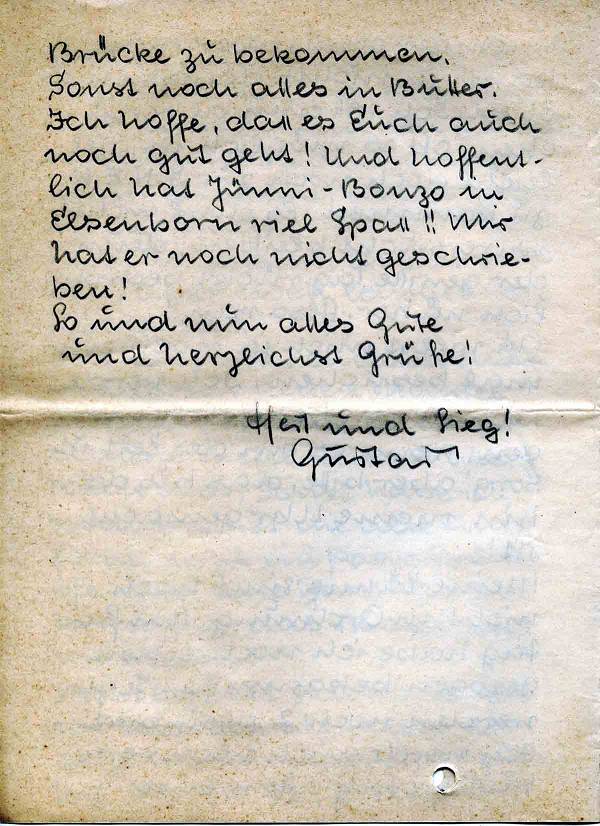 Brücke zu bekommen.
Sonst noch alles in Butter.
Ich hoffe, daß es Euch auch
noch gut geht! Und hoffent-
lich hat Jünni-Bonzo in
Elsenborn viel Spaß!! Mir
hat er noch nicht geschrie-
ben!
So und nun alles Gute
und herzlichst Grüße!
Heil und Sieg!
Gustav